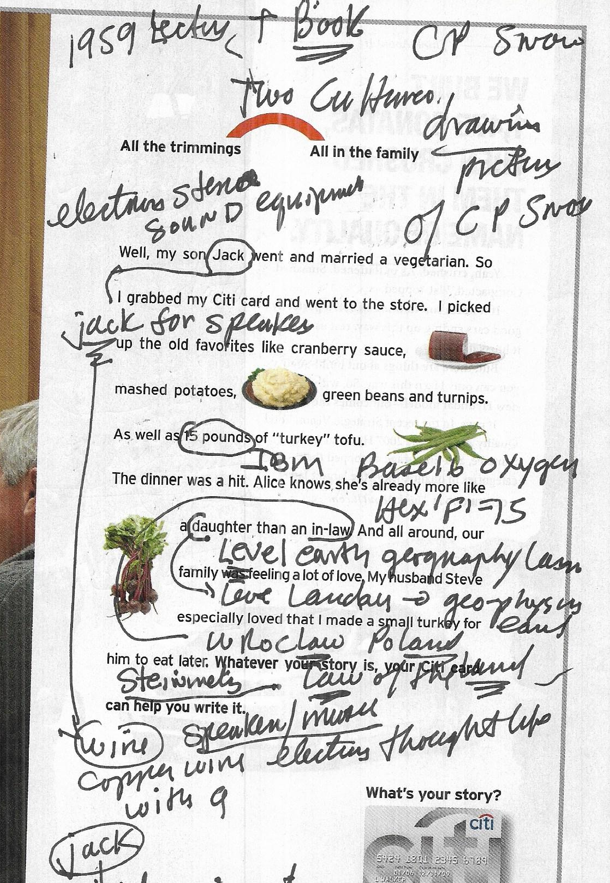 1959 lecture + Book CP Snow
Two Cultures.
drawing
All the trimmings All in the family
picture
electrons stereo equipment of CP Snow
SOUND
Well, my son Jack went and married a vegetarian. So
I grabbed my Citi card and went to the store. I picked
jack for speaker
up the old favorites like cranberry sauce,
mashed potatoes, green beans and turnips.
As well as 15 pounds of "turkey" tofu.
IBM Base 16 oxygen
The dinner was a hit. Alice knows she's already more like
Hex 'F' = 15
a daughter than an in-law. And all around, our
Level earth geography
family was feeling a lot of love. My husband Steve
Love Landau → geophysics
especially loved that I made a small turkey for
Wroclaw Poland
him to eat later. Whatever your story is, your Citi card
Steinmetz Law of the land
can help you write it.
wire speaker/music
electrons thought life
copper wire
with 9
What's your story?
jack
citi
5424 1801 2345 6789